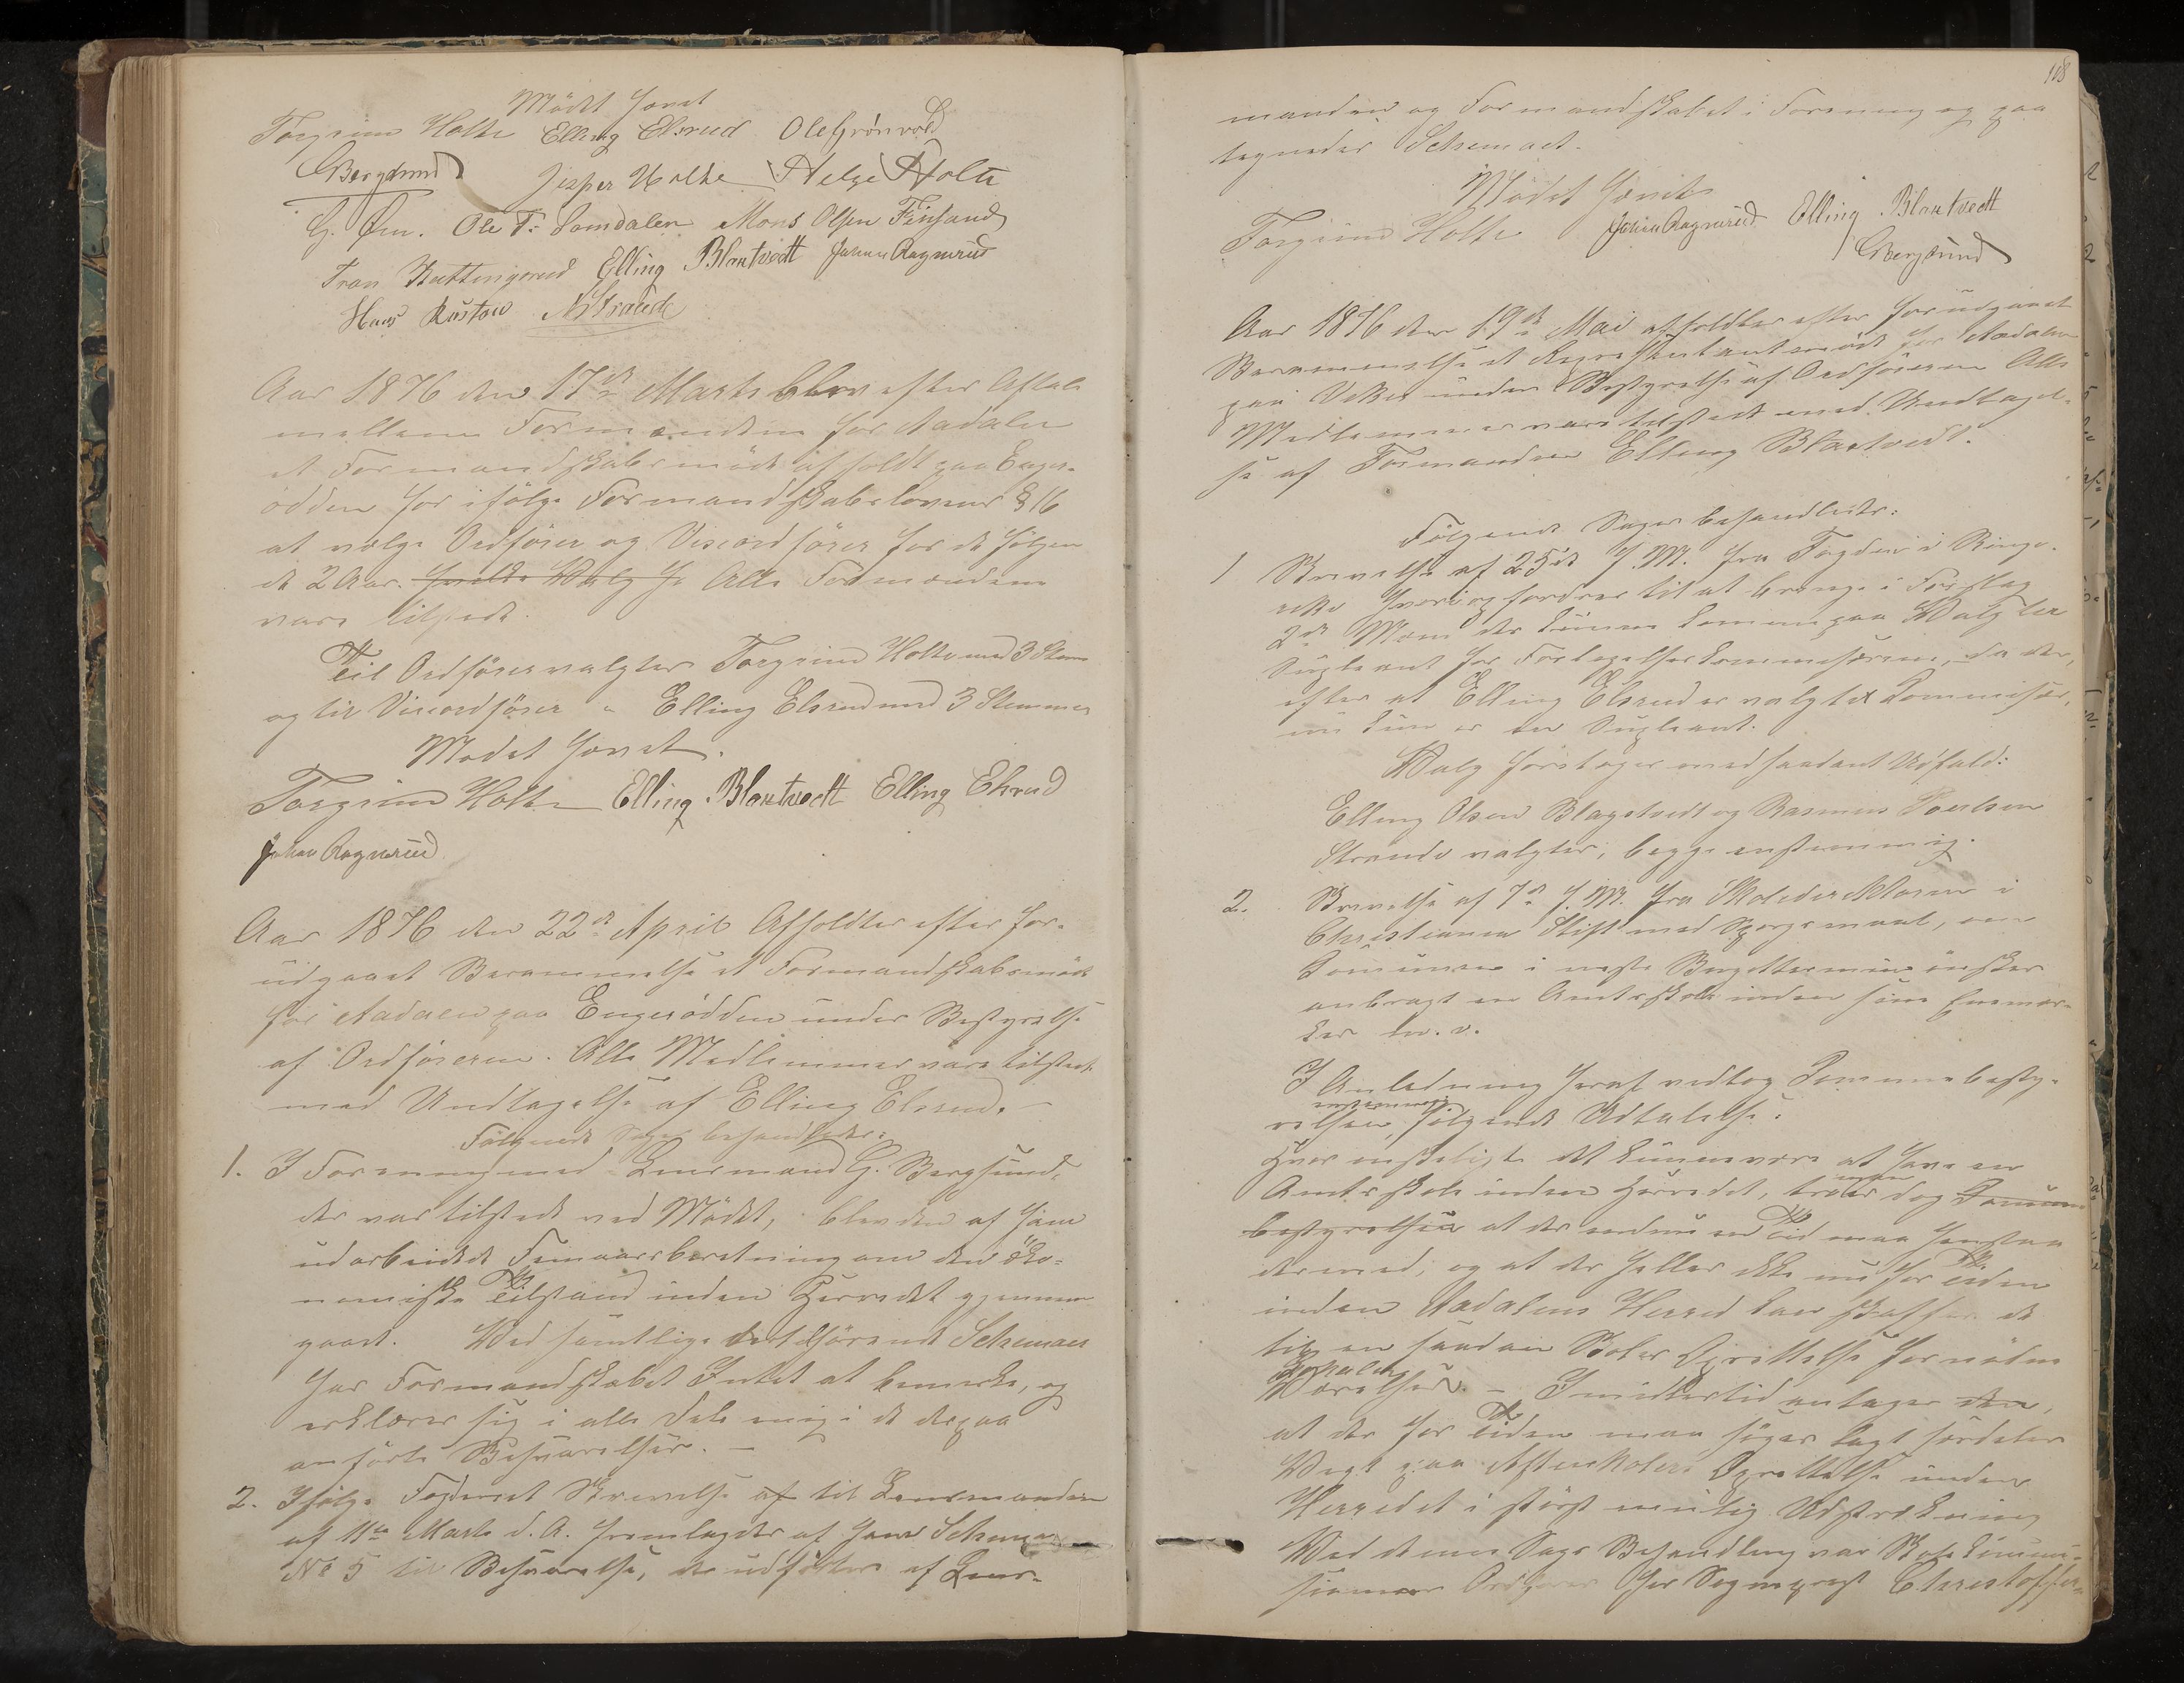 Mödet hævet
Torgrim Holte Elling Elsrud Ole Grönvold
GBergsund Jesper Holte Helge Holte
G. Øen. Ole T. Somdalen Mons Olsen Finsand
Iver Elling Blaktvedt Johan Ragnrud
Hans NStrande
Aar 1876 den 17de Marts blev efter Aftale
mellem Formændene for Aadalen
et Formandskabsmöde afholdt paa Enger-
odden for ifölge Formandskabslovens § 16
at vælge Ordförer og Viceordförer for de fölgen
de 2 Aar. hvilke Valg fo Alle Formændene
vare tilstede.
Til Ordförer valgtes Torgrim Holte med 3 Stem
og til Viceordförer " Elling Elsrud med 3 Stemmer
Mödet hævet.
Torgrim Holte Elling Blaktvedt Elling Elsrud
Johan Ragnrud
Aar 1876 den 22de April Afholdtes efter for-
udgaaet Berammelse et Formandskabsmöde
for Aadalen paa Engerodden under Bestyrelse
af Ordföreren. Alle Medlemmer vare tilstede
med Undtagelse af Elling Elsrud. –
Fölgende Sager behandledes:
1. I Forening med Lensmand G. Bergsund,
der var tilstede ved Mödet, blev den af ham
udarbeidede Femaarsberetning om den öko-
nomiske Tilstand inden Herredet gjennem
gaaet. Ved samtlige dertilhörende Schemaer
har Formandskabet Intet at bemærke, og
erklærer sig i alle Dele enig i de derpaa
anförte Besvarelser. –
2. Ifölge Fogderiets Skrivelse af til Lensmanden
af 11te Marts d. A. fremlagdes af ham Schema
No 5 til Besvarelse, der udfyldtes af Lens-
108
manden og Formandskabet i Forening og paa
tegnedes Schemaet.
Mödet hævet
Torgrim Holte Johan Ragnrud Elling Blaktvedt
GBergsund
Aar 1876 den 19de Mai afholdtes efter forudgaaet
Berammelse et Repræsentantmöde for Aadalen
paa Viker under Bestyrelse af Ordföreren Alle
Medlemmer vare tilstede med Undtagel-
se af Formanden Elling Blaktvedt.
Fölgende Sager behandledes:
1 Skrivelse af 25de f. M. fra Fogden i Ringe-
rike hvori opfordres til at bringe i Forslag
2de Mænd der kunne komme paa Valg til
Supleant for Forligelseskommissæren, da der,
efter at Elling Elsrud er valgt til Kommissær,
nu kun er een Supleant.
Valg foretoges med saadant Udfald:
Elling Olsen Blagstvedt og Rasmus Poulsen
Strande valgtes, begge enstemmig.
2. Skrivelse af 7de f. M. fra Skoledirektören i
Christiania Stift med Spörgsmaal, om
Kommunen i næste Budgettermin önsker
anbragt en Amtsskole inden sine Enemær-
ker m. v.
I Anledning heraf vedtog Kommunebesty-
relsen enstemmig fölgende Udtalelse:
Hvor önskeligt det kunne være at have en
Amtsskole inden Herredet, troer man dog Kommune
bestyrelsen at der endnu en Tid maa henstaa
dermed, og at der heller ikke nu for Tiden
inden Aadalens Herred kan skaffes de
til en saadan Skoles Oprettelse fornödne
Lokaler
Værelser. – Imidlertid antages den,
at der for Tiden maa söges lagt særdeles
Vægt paa Aftenskolers Oprettelse inden
Herredet i störst mulig Udstrækning
Ved denne Sags Behandling var Skolekommis-
sionens Ordförer Hr Sognepræst Christoffer-